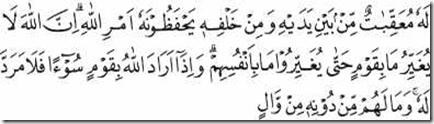 لَهٗ مُعَقِّبٰتٌ مِّنْۢ بَيْنِ يَدَيْهِ وَمِنْ خَلْفِهٖ يَحْفَظُوْنَهٗ مِنْ اَمْرِ اللّٰهِ ۗاِنَّ اللّٰهَ لَا
يُغَيِّرُ مَا بِقَوْمٍ حَتّٰى يُغَيِّرُوْا مَا بِاَنْفُسِهِمْ ۗوَاِذَآ اَرَادَ اللّٰهُ بِقَوْمٍ سُوْۤءًا فَلَا مَرَدَّ
لَهٗ ۚوَمَا لَهُمْ مِّنْ دُوْنِهٖ مِنْ وَّالٍ